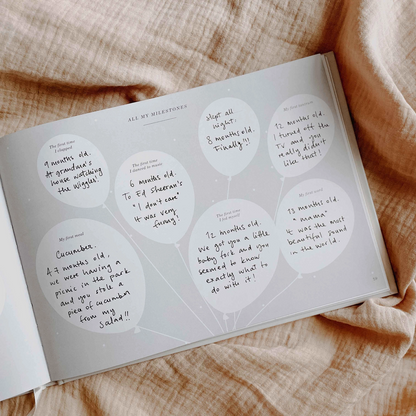 ALL MY MILESTONES
The first time
I clapped
9 months old.
At grandma's
house watching
the Wiggles.
The first time
I danced to music
6 months old.
To Ed Sheeran's
"I don't care"
It was very
funny!
slept all
night:
8 months old.
Finally!!!
12 months old.
I turned off the
TV and you
really didn't
like that!
My first food
Cucumber.
At 7 months old,
we were having a
picnic in the park
and you stole a
piece of cucumber
from my
salad!!
The first time
12 months old.
We got you a little
baby fork and you
seemed to know
exactly what to
do with it!
My first word
13 months old.
"mama"
It was the most
beautiful sound
in the world.